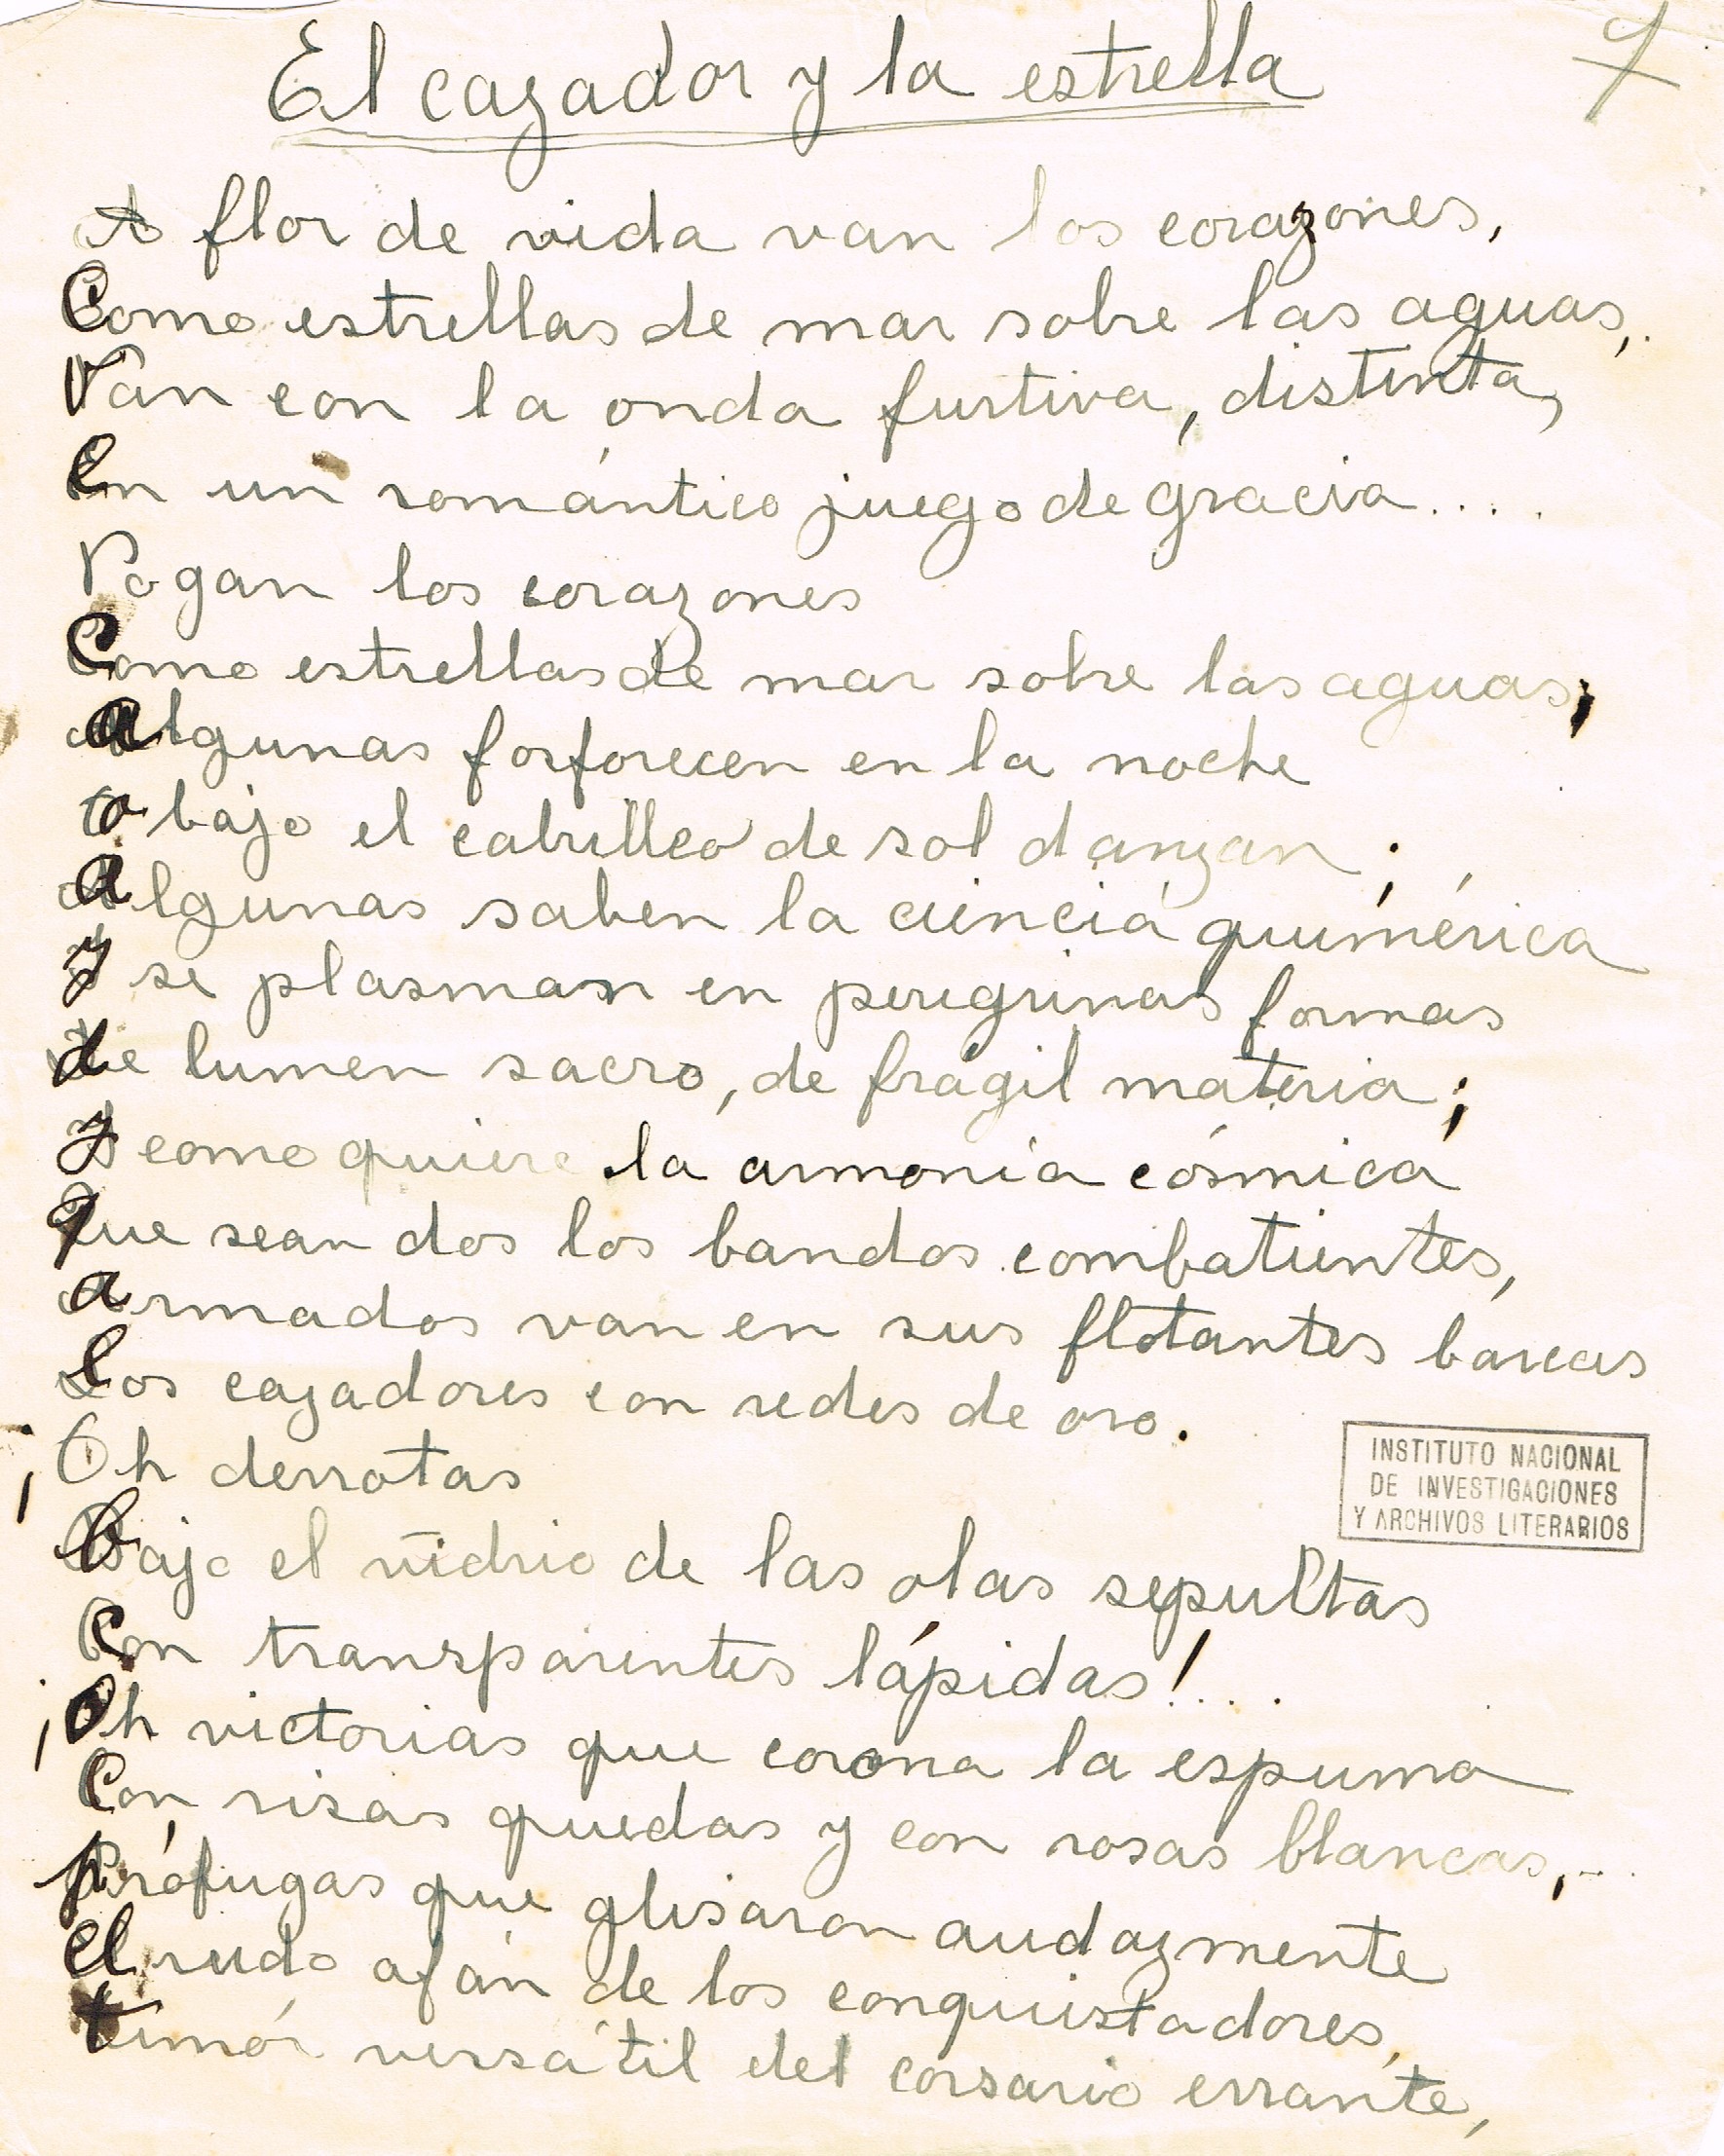 El cazador y la estrella
7
A flor de vida van los corazones,
Como estrellas de mar sobre las aguas,
Van con la onda furtiva, distinta,
En un romántico juego de gracia....
Vogan los corazones
Como estrellas de mar sobre las aguas;
algunas fosforecen en la noche
o bajo el cabrilleo de sol danzan;
algunas saben la ciencia quimérica
y se plasman en peregrinas formas
de lumen sacro, de frágil materia;
y como quiere la armonía cósmica
que sean dos los bandos combatientes,
armados van en sus flotantes barcas
los cazadores con redes de oro.
¡Oh derrotas
bajo el vidrio de las olas sepultas
con transparentes lápidas!...
¡Oh victorias que corona la espuma
Con risas quedas y con rosas blancas,
prófugas que glisaron audazmente
el rudo afán de los conquistadores,
timón versátil del corsario errante,
INSTITUTO NACIONAL
DE INVESTIGACIONES
Y ARCHIVOS LITERARIOS